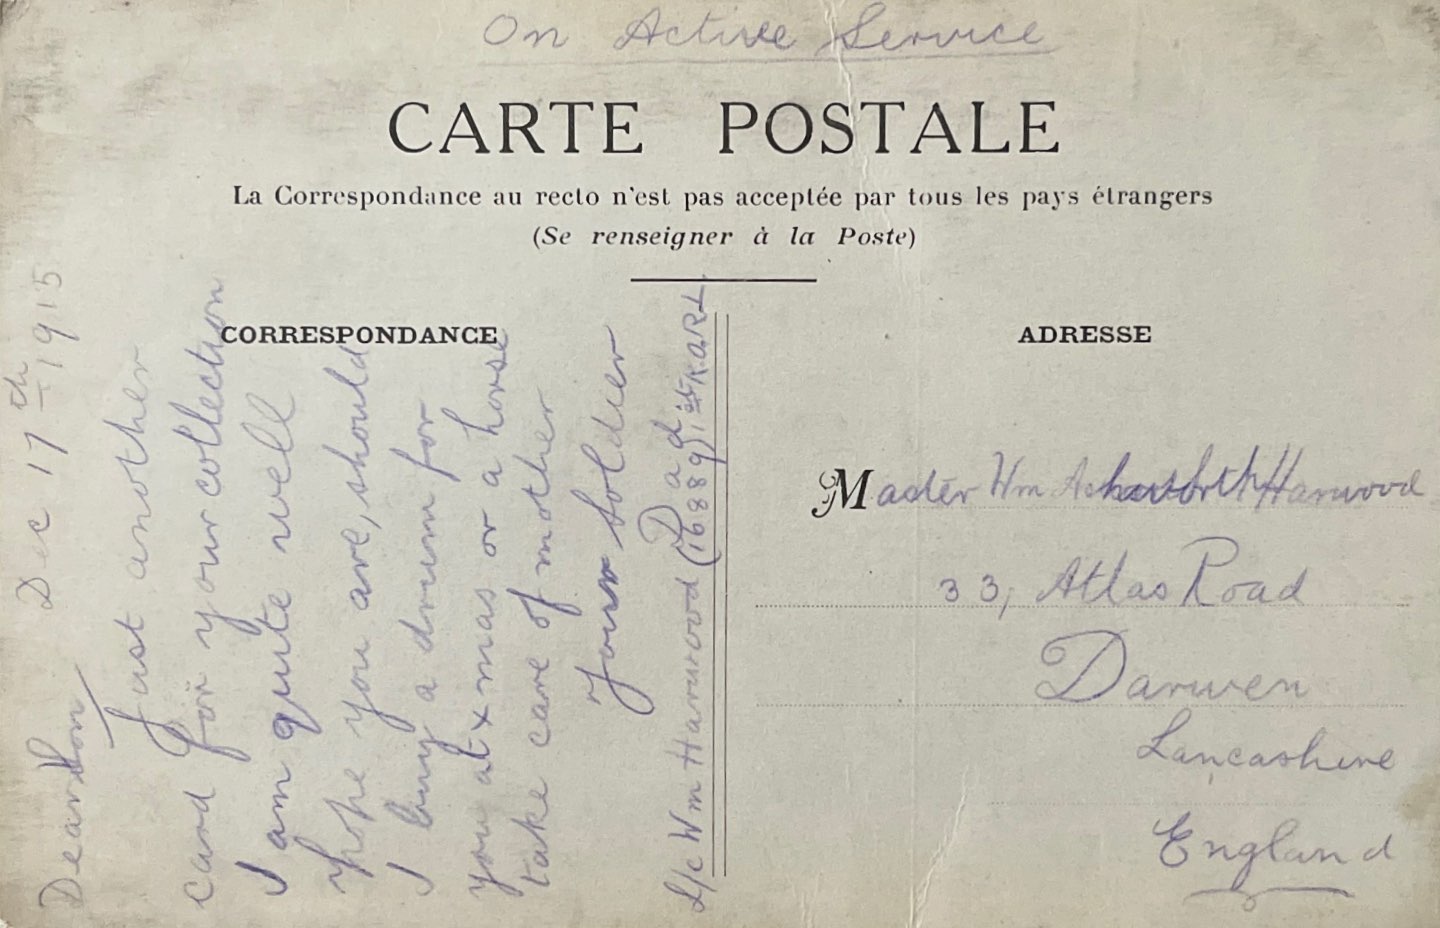 On Active Service
CARTE POSTALE
La Correspondance au recto n'est pas acceptée par tous les pays étrangers
(Se renseigner à la Poste)
CORRESPONDANCE
Dec 17th-1915
Dear Son/
Just another
card for your collection
I am quite well
hope you are, should
I buy a drum for
you at xmas or a horse
take care of mother
your Soldier
Dad
L/c Wm Harwood (16889) 1st K.O.R.L
ADRESSE
Master Wm Harwood
33, Atlas Road
Darwen
Lancashire
England